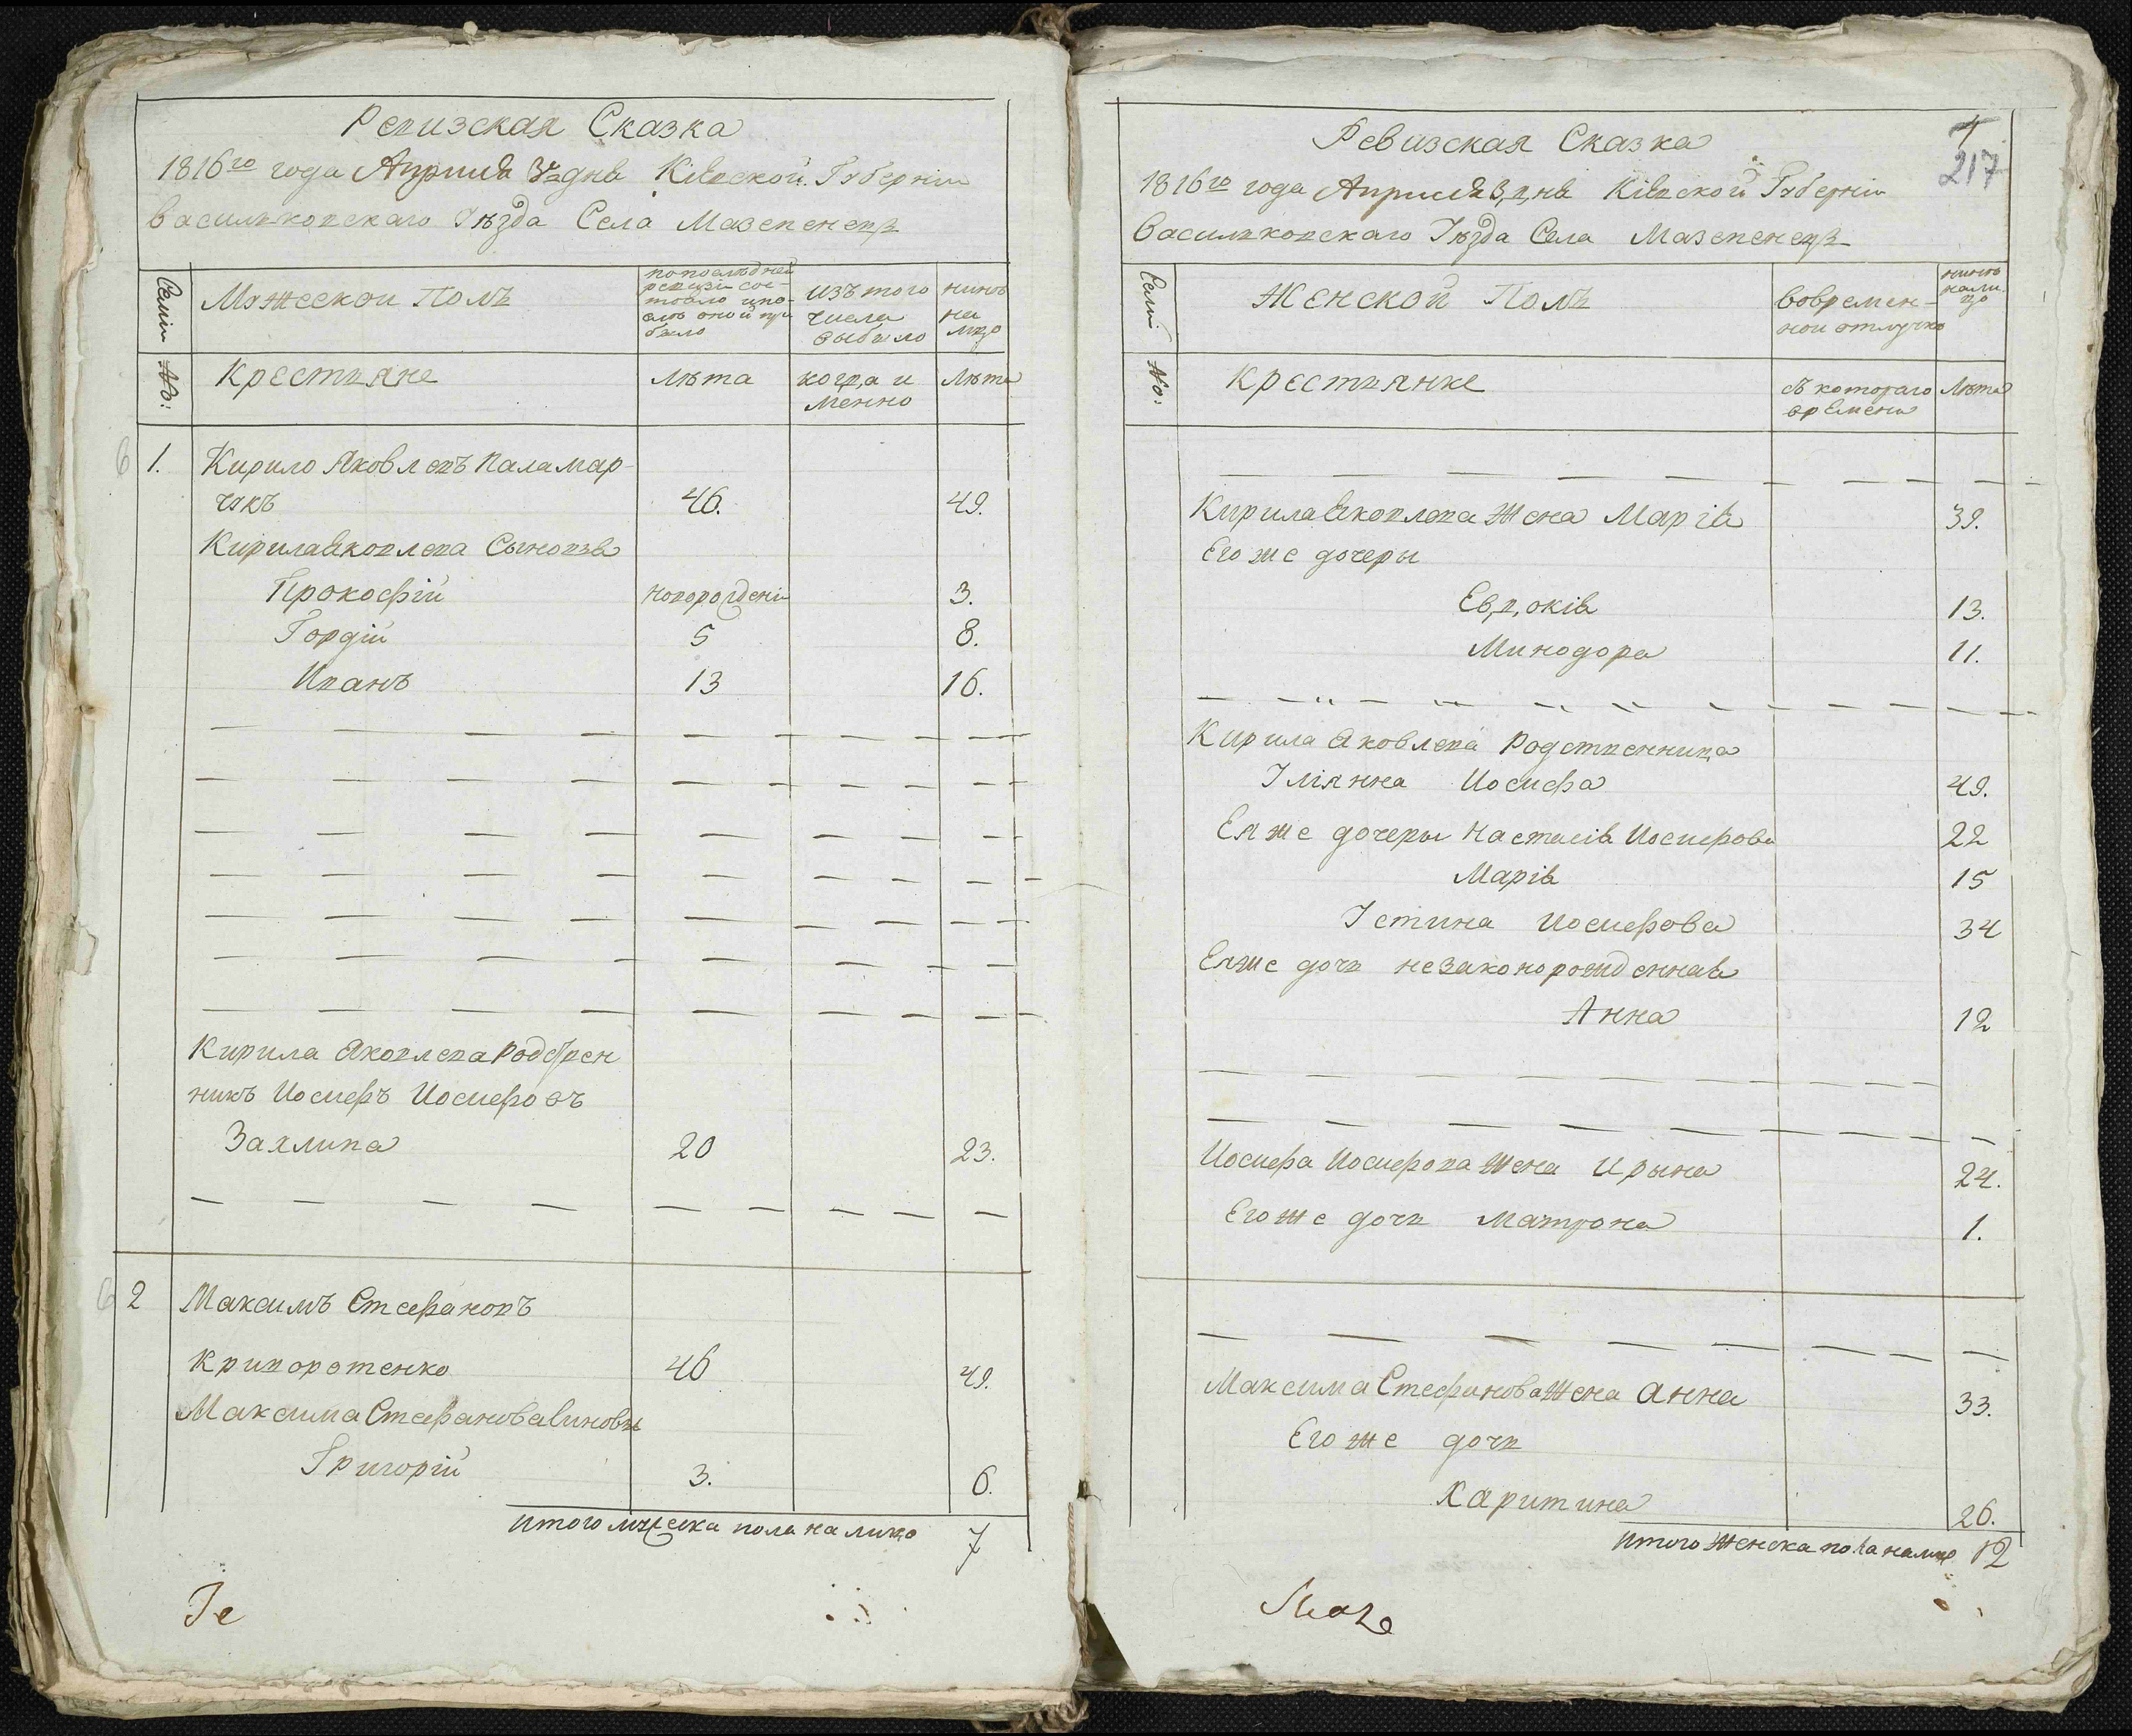 Ревизская Сказка
1816го года Априля дня Кіевской Губерніи
Васильковского Уѣзда Села Мазепенецъ
Семьи
Мужеской Полъ
по последней
ревизіи сос-
тояло и по-
слѣ оной при
было
изъ того
числа
выбыло
нинѣ
на
лицо
№:
Крестьяне
лѣта
когда и
менно
лѣта
6 1. Кирило Яковлевъ Паламар-
чукъ 46. 49.
Кирила Яковлева Сыновья
Прокофій новорожденій 3.
Гордій 5 8.
Иванъ 13 16.
Кирила Яковлева Родствен
никъ Иосифъ Иосифовъ
20 23.
6 2 Максимъ Стефановъ
Криворотенко 46 49.
Максима Стефанова синовья
Григорій 3. 6.
Итого мужеска пола на лицо 7
Ге
4
217
Ревизская Сказка
1816го года Априля 3, дня Кіевской Губерніи
Васильковскаго Уѣзда Села Мазепенецъ
Семьи
Женской Полъ
вовремен-
ной отлучкѣ
нинѣ
на ли
цо
№:
Крестьянке
съ котораго
времени
Лѣта
Кирила Яковлева Жена Марія 39.
Его же дочеры
Евдокія 13.
Минодора 11.
Кирила Яковлева Родственница
Уліянна Иосифа 49.
Ея же дочеры Настасія Иосифова 22
Марія 15
Устина Иосифова 34
Ея же дочь незаконорожденная
Анна 12
Иосифа Иосифова Жена Ирына 24.
Его же дочь Матрона 1.
Максима Стефанова Жена Анна 33.
Его же дочь
Харитина 26.
Итого Женска пола налицо 12